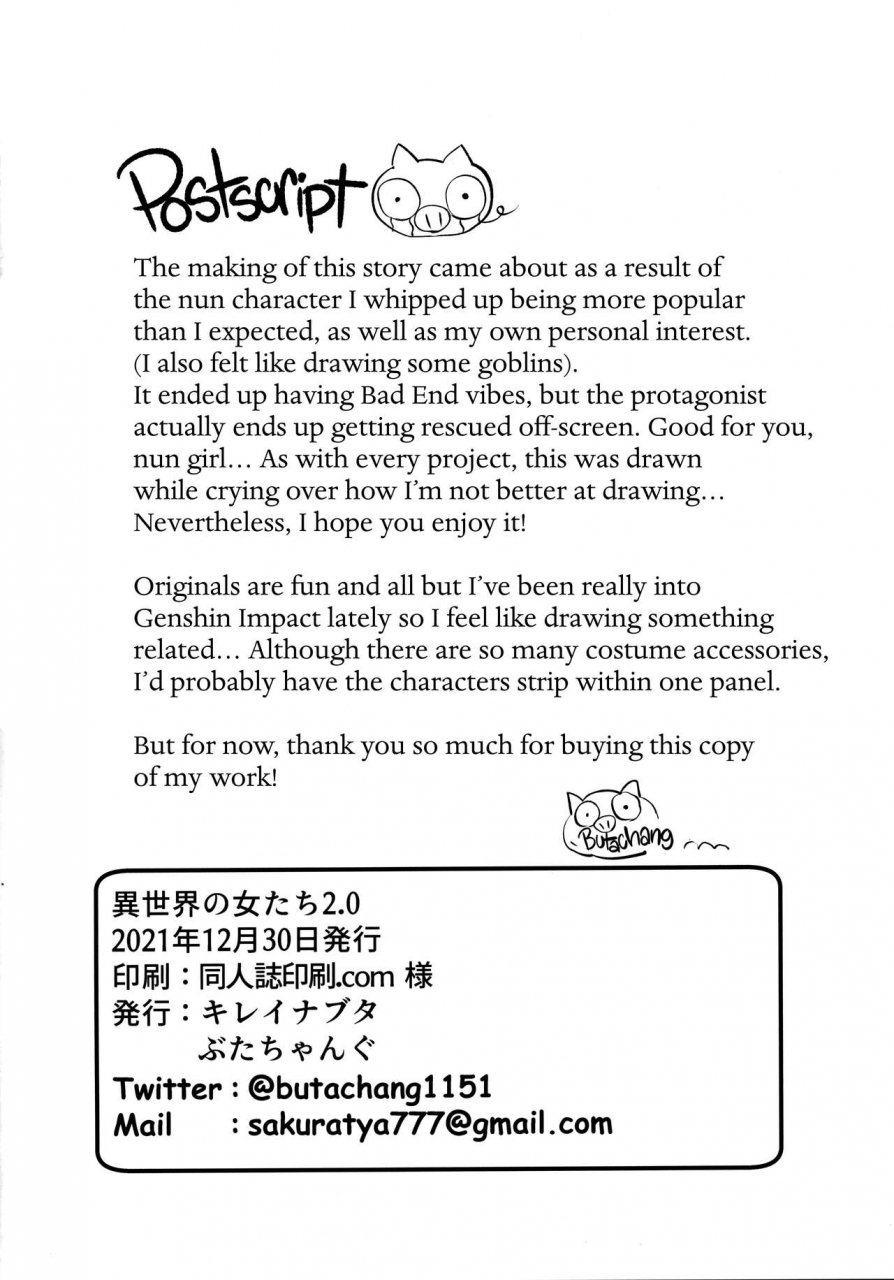 Postscript
The making of this story came about as a result of
the nun character I whipped up being more popular
than I expected, as well as my own personal interest.
(I also felt like drawing some goblins).
It ended up having Bad End vibes, but the protagonist
actually ends up getting rescued off-screen. Good for you,
nun girl... As with every project, this was drawn
while crying over how I'm not better at drawing...
Nevertheless, I hope you enjoy it!
Originals are fun and all but I've been really into
Genshin Impact lately so I feel like drawing something
related... Although there are so many costume accessories,
I'd probably have the characters strip within one panel.
But for now, thank you so much for buying this copy
of my work!
Butachang
異世界の女たち2.0
2021年12月30日発行
印刷：同人誌印刷.com 様
発行：キレイナブタ
ぶたちゃんぐ
Twitter : @butachang1151
Mail : sakuratya777@gmail.com